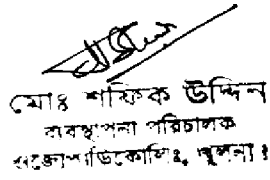 মোঃ শফিক উদ্দিন
ব্যবস্থাপনা পরিচালক
ওজোপাডিকোলিঃ, খুলনা।